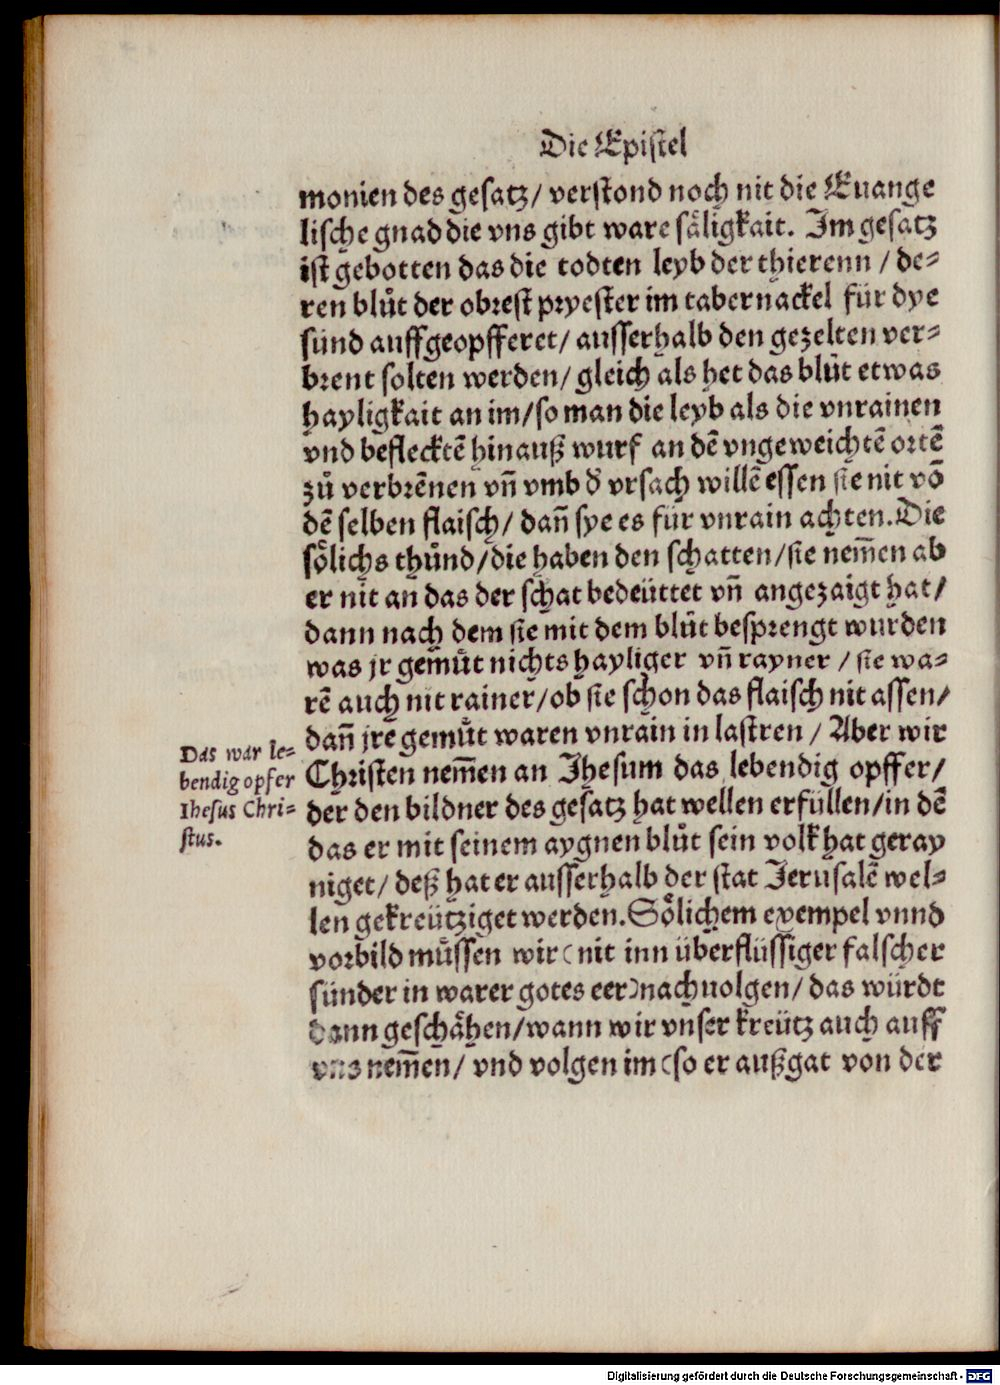 Die Epistel
monien des gesatz/ verstond noch nit die Euange
lische gnad die vns gibt ware säligkait. Im gesatz
ist gebotten das die todten leyb der thierenn / de-
ren blůt der obrest pryester im tabernackel für dye
sünd auffgeopfferet/ ausserhalb den gezelten ver-
brent solten werden/ gleich als het das blůt etwas
hayligkait an im/so man die leyb als die vnrainen
vnd beflecktē hinauß wurf an dē vngeweichtē ortē
zů verbrēnen vn̄ vmb d̄ vrsach willē essen sie nit vō
dē selben flaisch/ dan̄ sye es für vnrain achten.Die
sölichs thůnd/die haben den schatten/sie nem̄en ab
er nit an das der schat bedeüttet vn̄ angezaigt hat/
dann nach dem sie mit dem blůt besprengt wurden
was jr gemůt nichts hayliger vn̄ rayner / sie wa-
rē auch nit rainer/ob sie schon das flaisch nit assen/
dan̄ jre gemůt waren vnrain in lastren / Aber wir
Das war le-
bendig opfer
Ihesus Chri-
stus.
Christen nem̄en an Jhesum das lebendig opffer/
der den bildner des gesatz hat wellen erfüllen/in dē
das er mit seinem aygnen blůt sein volk hat geray
niget/ deß hat er ausserhalb der stat Jerusalē wel-
len gekreütziget werden.Sölichem exempel vnnd
vorbild müssen wir (nit inn überflüssiger falscher
sünder in warer gotes eer)nachuolgen/ das würdt
dann geschähen/wann wir vnser kreütz auch auff
vns nem̄en/ vnd volgen im (so er außgat von der
Digitalisierung gefördert durch die Deutsche Forschungsgemeinschaft - DFG